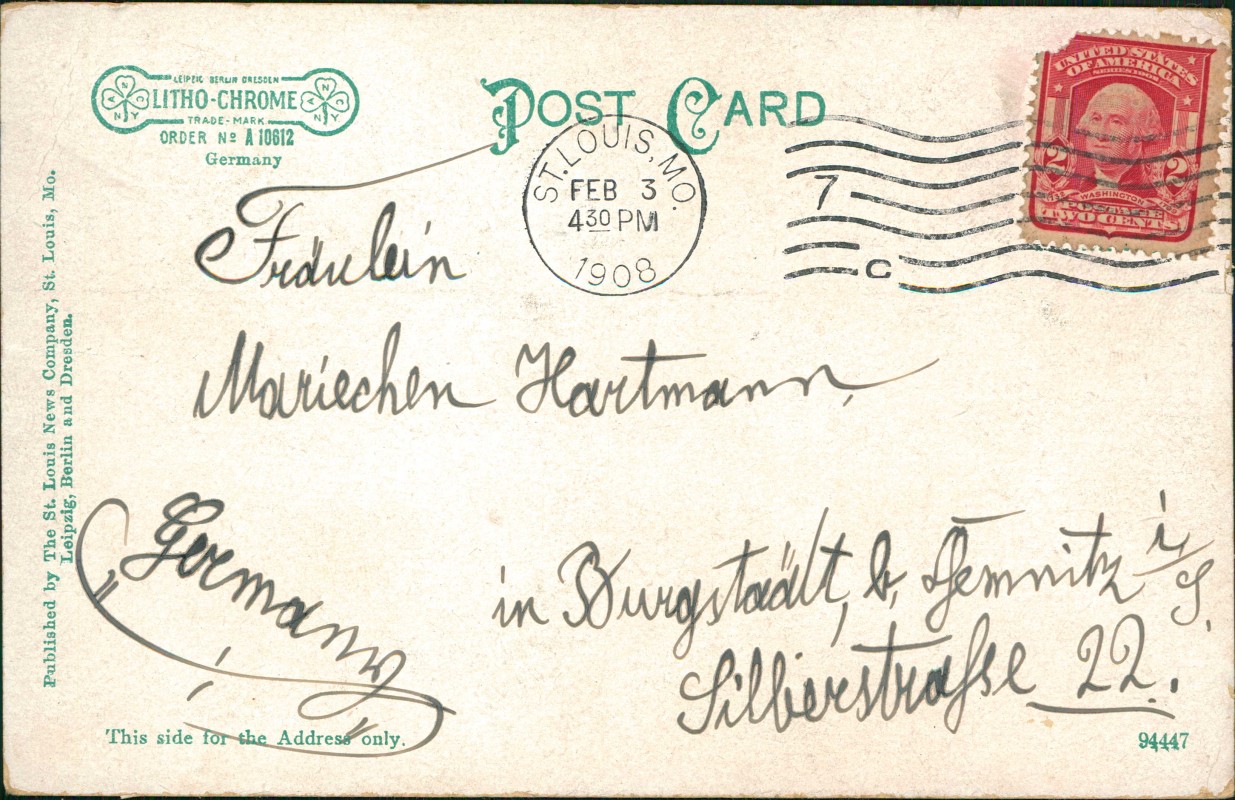 LEIPZIG BERLIN DRESDEN
LITHO-CHROME
TRADE-MARK
ORDER No A 10612
Germany
POST CARD
ST. LOUIS, MO.
FEB 3
4 30 PM
1908
7
C
UNITED STATES
OF AMERICA
SERIES 1902
2 2
WASHINGTON
POSTAGE
TWO CENTS
Fräulein
Mariechen Hartmann,
Germany
in Burgstädt, b,
i/S.
Silberstrasse 22.
Published by The St. Louis News Company, St. Louis, Mo.
Leipzig, Berlin and Dresden.
This side for the Address only.
94447